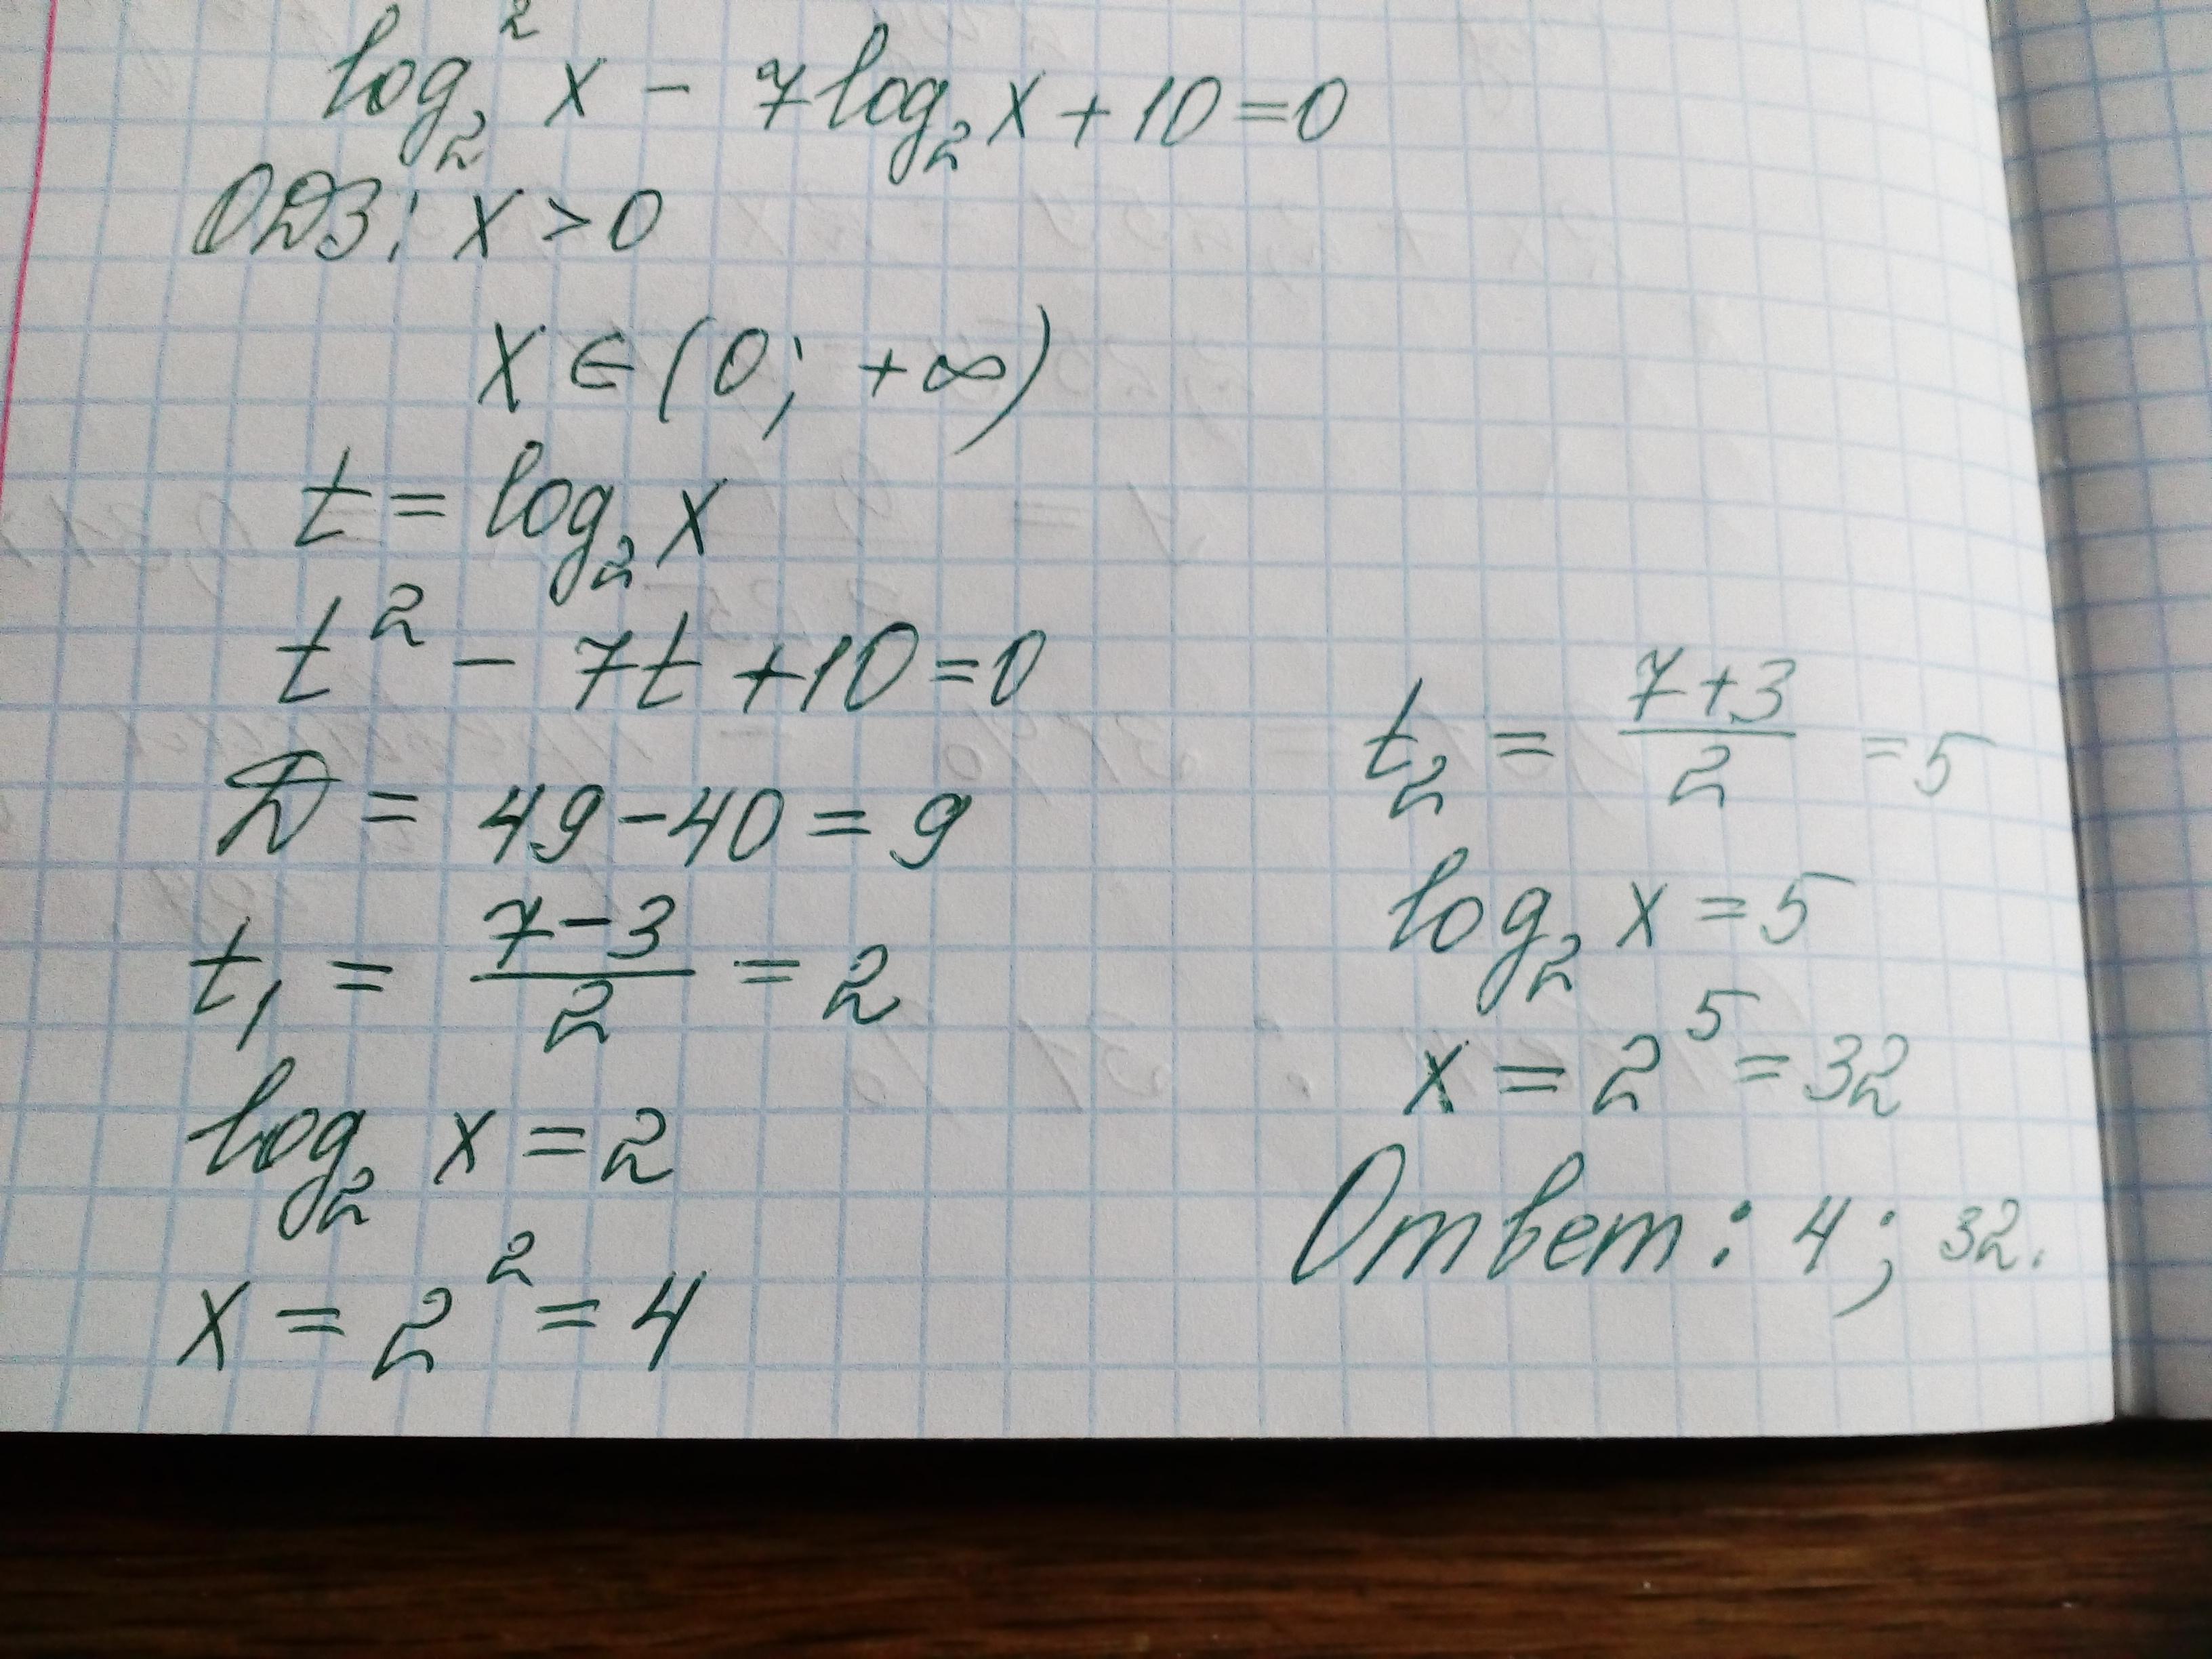 log₂² x − 7log₂ x + 10 = 0
ОДЗ: x > 0
x ∈ (0; +∞)
t = log₂ x
t² − 7t + 10 = 0
D = 49 − 40 = 9
t₁ = (7−3)/2 = 2
log₂ x = 2
x = 2² = 4
t₂ = (7+3)/2 = 5
log₂ x = 5
x = 2⁵ = 32
Ответ: 4; 32.